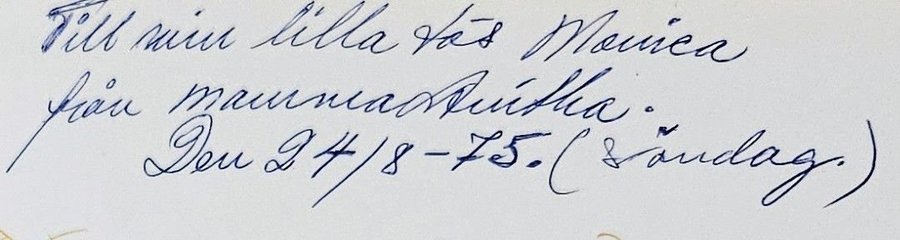 Till min lilla tös Monica
från mamma Anitha.
Den 24/8-75. (Söndag.)